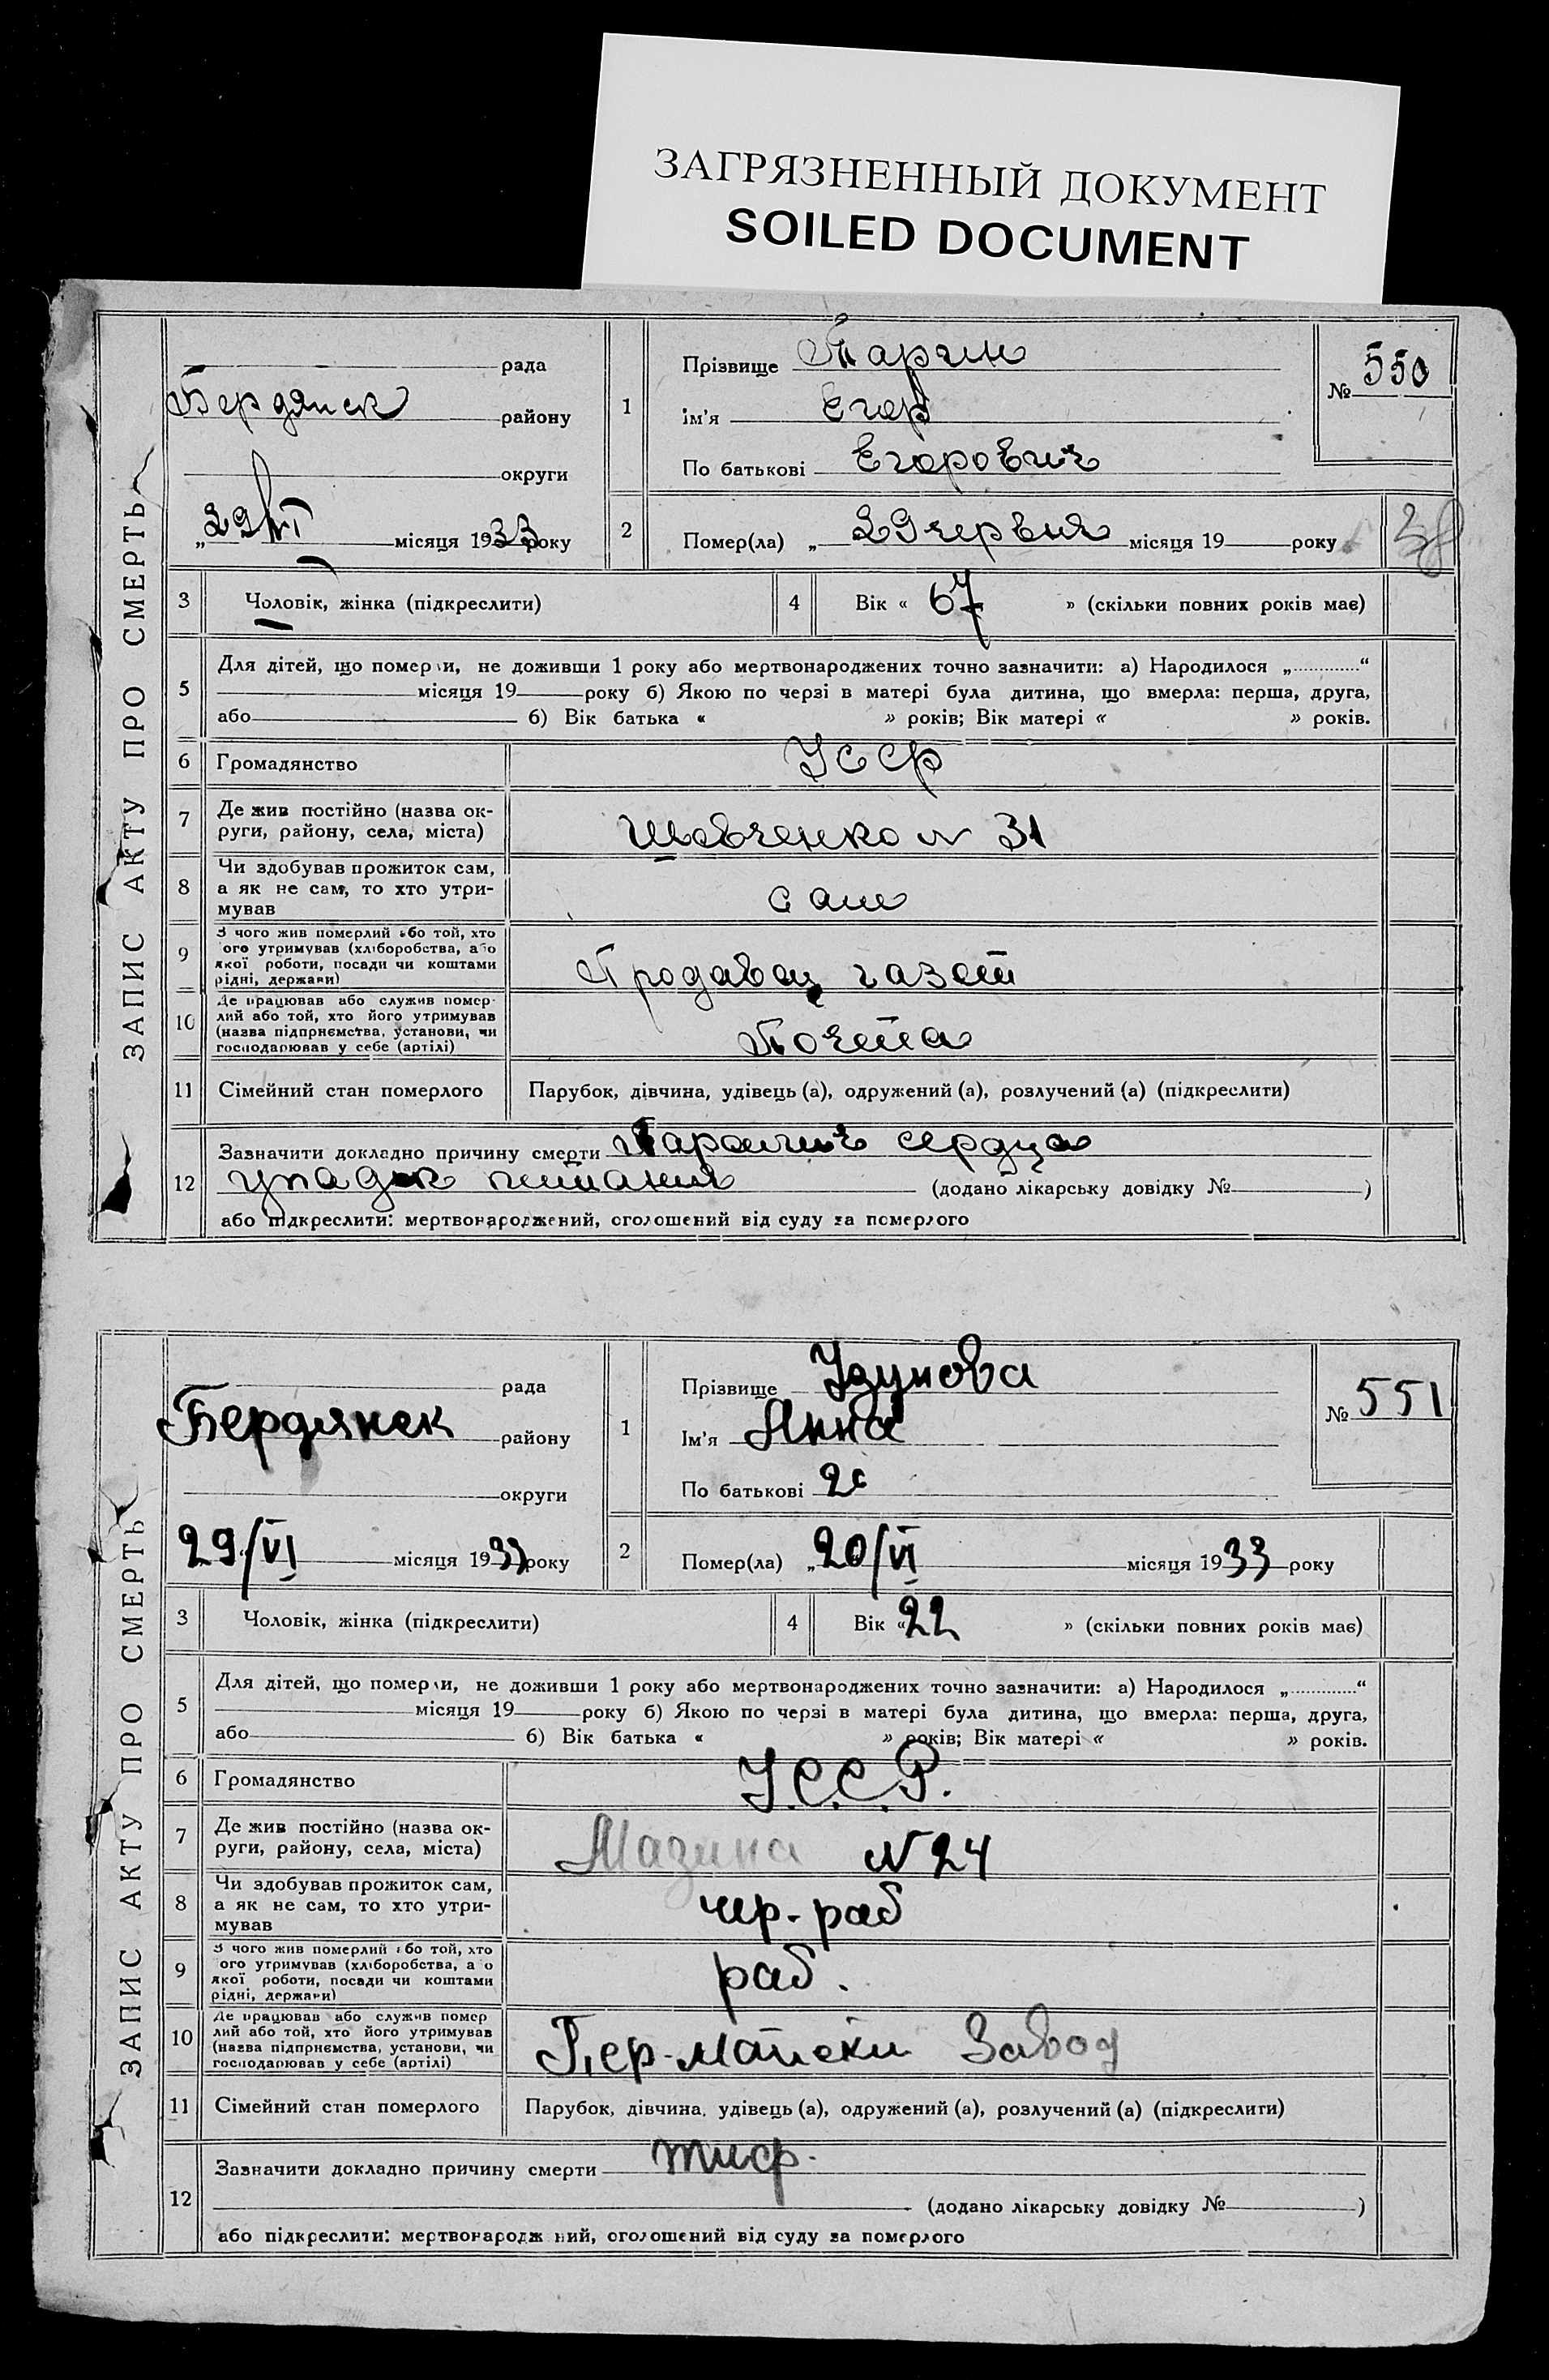 ЗАГРЯЗНЕННЫЙ ДОКУМЕНТ
SOILED DOCUMENT
ЗАПИС АКТУ ПРО СМЕРТЬ
рада
Бердянск району
округи
„29/VI місяця 1933 року
1
Прізвище
Ім'я Егор
По батькові Егорович
№ 550
2
Помер(ла) „ 29 червня місяця 19 року
38
3 Чоловік, жінка (підкреслити)
4 Вік « 67 » (скільки повних років має)
5 Для дітей, що померли, не доживши 1 року або мертвонароджених точно зазначити: а) Народилося „ “
місяця 19 року б) Якою по черзі в матері була дитина, що вмерла: перша, друга,
або б) Вік батька « » років; Вік матері « » років.
6 Громадянство УССР
7 Де жив постійно (назва ок-
руги, району, села, міста) Шевченко N 31
8 Чи здобував прожиток сам,
а як не сам, то хто утри-
мував сам
9 З чого жив померлий або той, хто
ого утримував (хліборобства, або
якої роботи, посади чи коштами
рідні, держави) Продавец газет
10 Де працював або служив помер-
лий або той, хто його утримував
(назва підприємства, установи, чи
господарював у себе (артілі) Почта
11 Сімейний стан померлого Парубок, дівчина, удівець (а), одружений (а), розлучений (а) (підкреслити)
12 Зазначити докладно причину смерти Паралич сердца
упадок питания (додано лікарську довідку № )
або підкреслити: мертвонароджений, оголошений від суду за померлого
ЗАПИС АКТУ ПРО СМЕРТЬ
рада
Бердянск району
округи
29/VI місяця 1933 року
1
Прізвище
Ім'я Анна
По батькові
№ 551
2
Помер(ла) „20/VI місяця 1933 року
3 Чоловік, жінка (підкреслити)
4 Вік «22 » (скільки повних років має)
5 Для дітей, що померли, не доживши 1 року або мертвонароджених точно зазначити: а) Народилося „ “
місяця 19 року б) Якою по черзі в матері була дитина, що вмерла: перша, друга,
або б) Вік батька « » років; Вік матері « » років.
6 Громадянство У.С.С.Р.
7 Де жив постійно (назва ок-
руги, району, села, міста) Мазина N 24
8 Чи здобував прожиток сам,
а як не сам, то хто утри-
мував чер-раб
9 З чого жив померлий або той, хто
ого утримував (хліборобства, або
якої роботи, посади чи коштами
рідні, держави) раб.
10 Де працював або служив помер
лий або той, хто його утримував
(назва підприємства, установи, чи
господарював у себе (артілі) Пер-майски Завод
11 Сімейний стан померлого Парубок, дівчина, удівець (а), одружений (а), розлучений (а) (підкреслити)
12 Зазначити докладно причину смерти тиф.
(додано лікарську довідку № )
або підкреслити: мертвонароджений, оголошений від суду за померлого